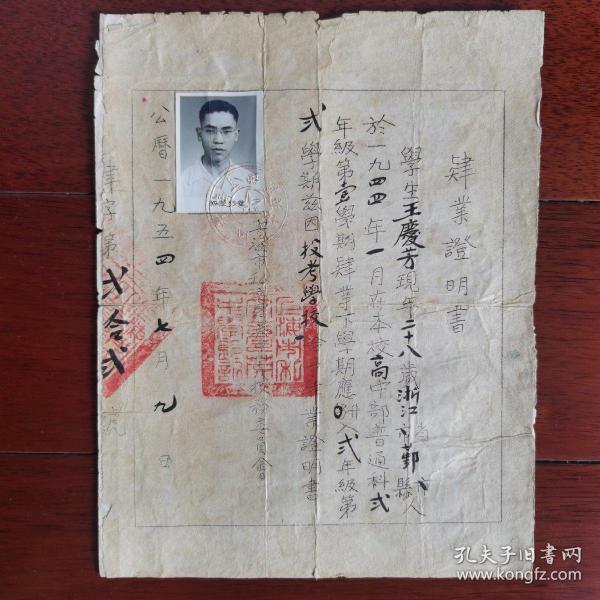 肄業證明書
學生王慶芳現年二十八歲浙江省鄞縣人
於一九四四年一月在本校高中部普通科弍
年級第壹學期肄業下學期應升入弍年級第
弍學期茲因投考學校 業證明書
校務委員會
公曆一九五四年七月九日
肄字第弍合弍號
孔夫子旧书网
www.kongfz.com